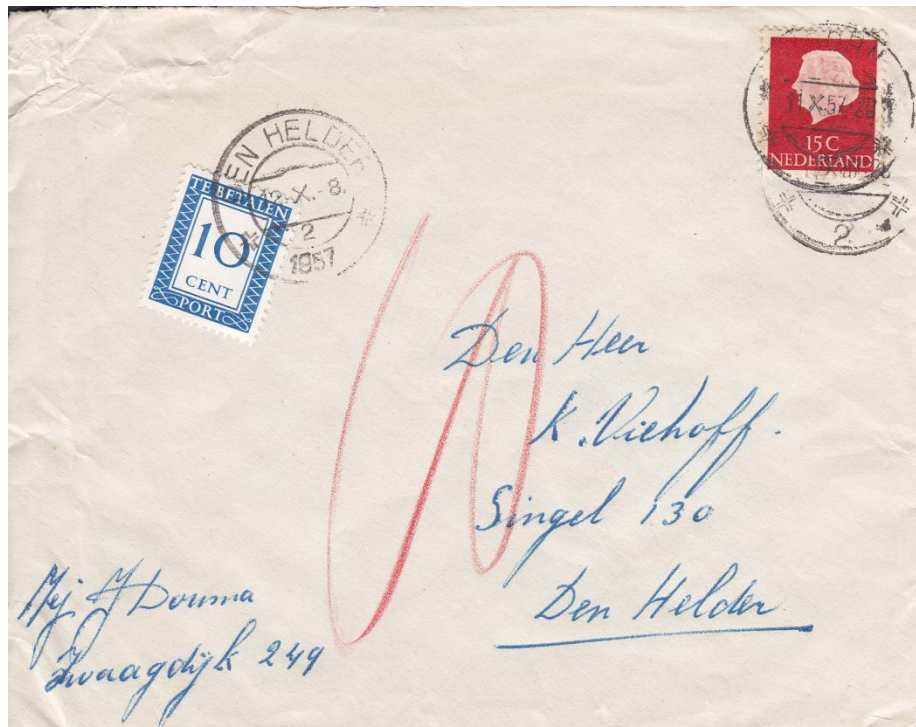 15C
NEDERLAND
11.X.57
2
DEN HELDER
12.X.-8.
2
1957
TE BETALEN
10
CENT
PORT
10
Den Heer
K. Viehoff.
Singel 130
Den Helder
Mej J Douma
Zwaagdijk 249